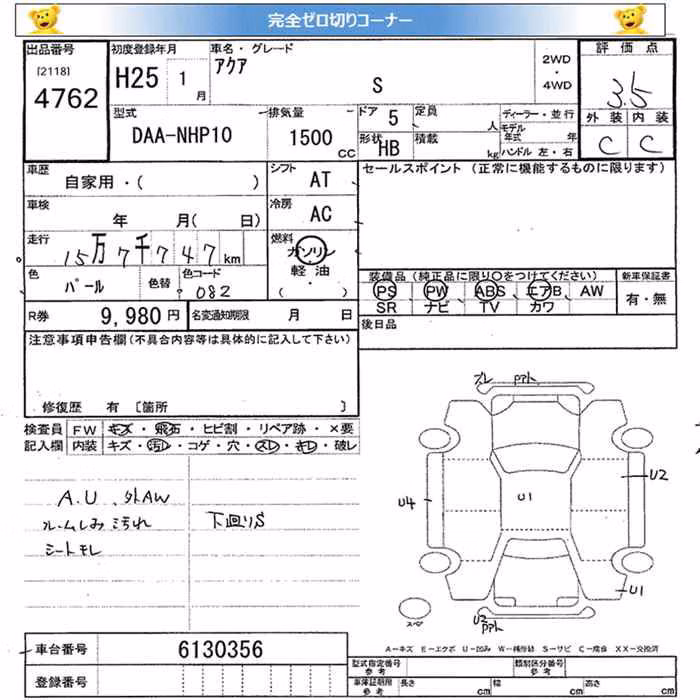 完全ゼロ切りコーナー
出品番号 初度登録年月 車名・グレード 評価点
[2118] H25 1月 アクア S 2WD・4WD 3.5
4762
型式 排気量 ドア 5 定員 人 ディーラー・並行 外装 内装
DAA-NHP10 1500cc 形状 HB 積載 kg モデル年式 年 C C
ハンドル 左・右
車歴 シフト セールスポイント (正常に機能するものに限ります)
自家用・( ) AT
車検 年 月( 日) 冷房 AC
走行 15万7千747km 燃料 ガソリン
軽油
・
( )
色 パール 色替 色コード 082
装備品(純正品に限り○をつけてください) 新車保証書
PS PW ABS エアB AW 有・無
SR ナビ TV カワ
R券 9,980円 名変通知期限 月 日 後日品
注意事項申告欄(不具合内容等は具体的に記入して下さい)
修復歴 有 [箇所 ]
検査員 FW キズ・飛石・ヒビ割・リペア跡・×要
記入欄 内装 キズ・汚レ・コゲ・穴・スレ・キレ・破レ
A.U、外AW
ルームしみ汚れ 下廻りS
シートキレ
ズレ ppト
U2
U4
U1
U1
U2
ppト
スペ
A-キズ E-エクボ U-凹み W-補修跡 S-サビ C-腐食 XX-交換済
車台番号 6130356
型式指定番号 参考 類別区分番号 参考
登録番号
車庫証明限 参考 長さ cm 幅 cm 高さ cm